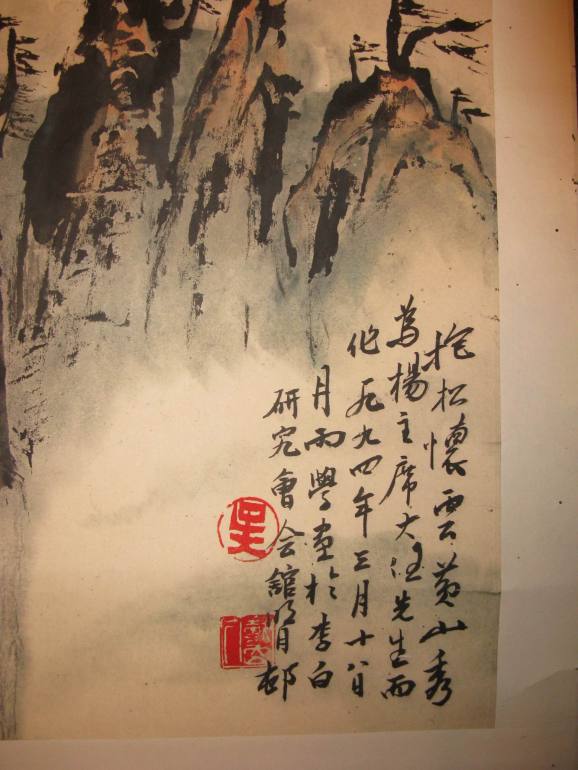 抱松懷雲黄山秀
為楊主席大任先生而
作九四年三月十八日
月雨學畫於李白
研究會会館明邨
吴